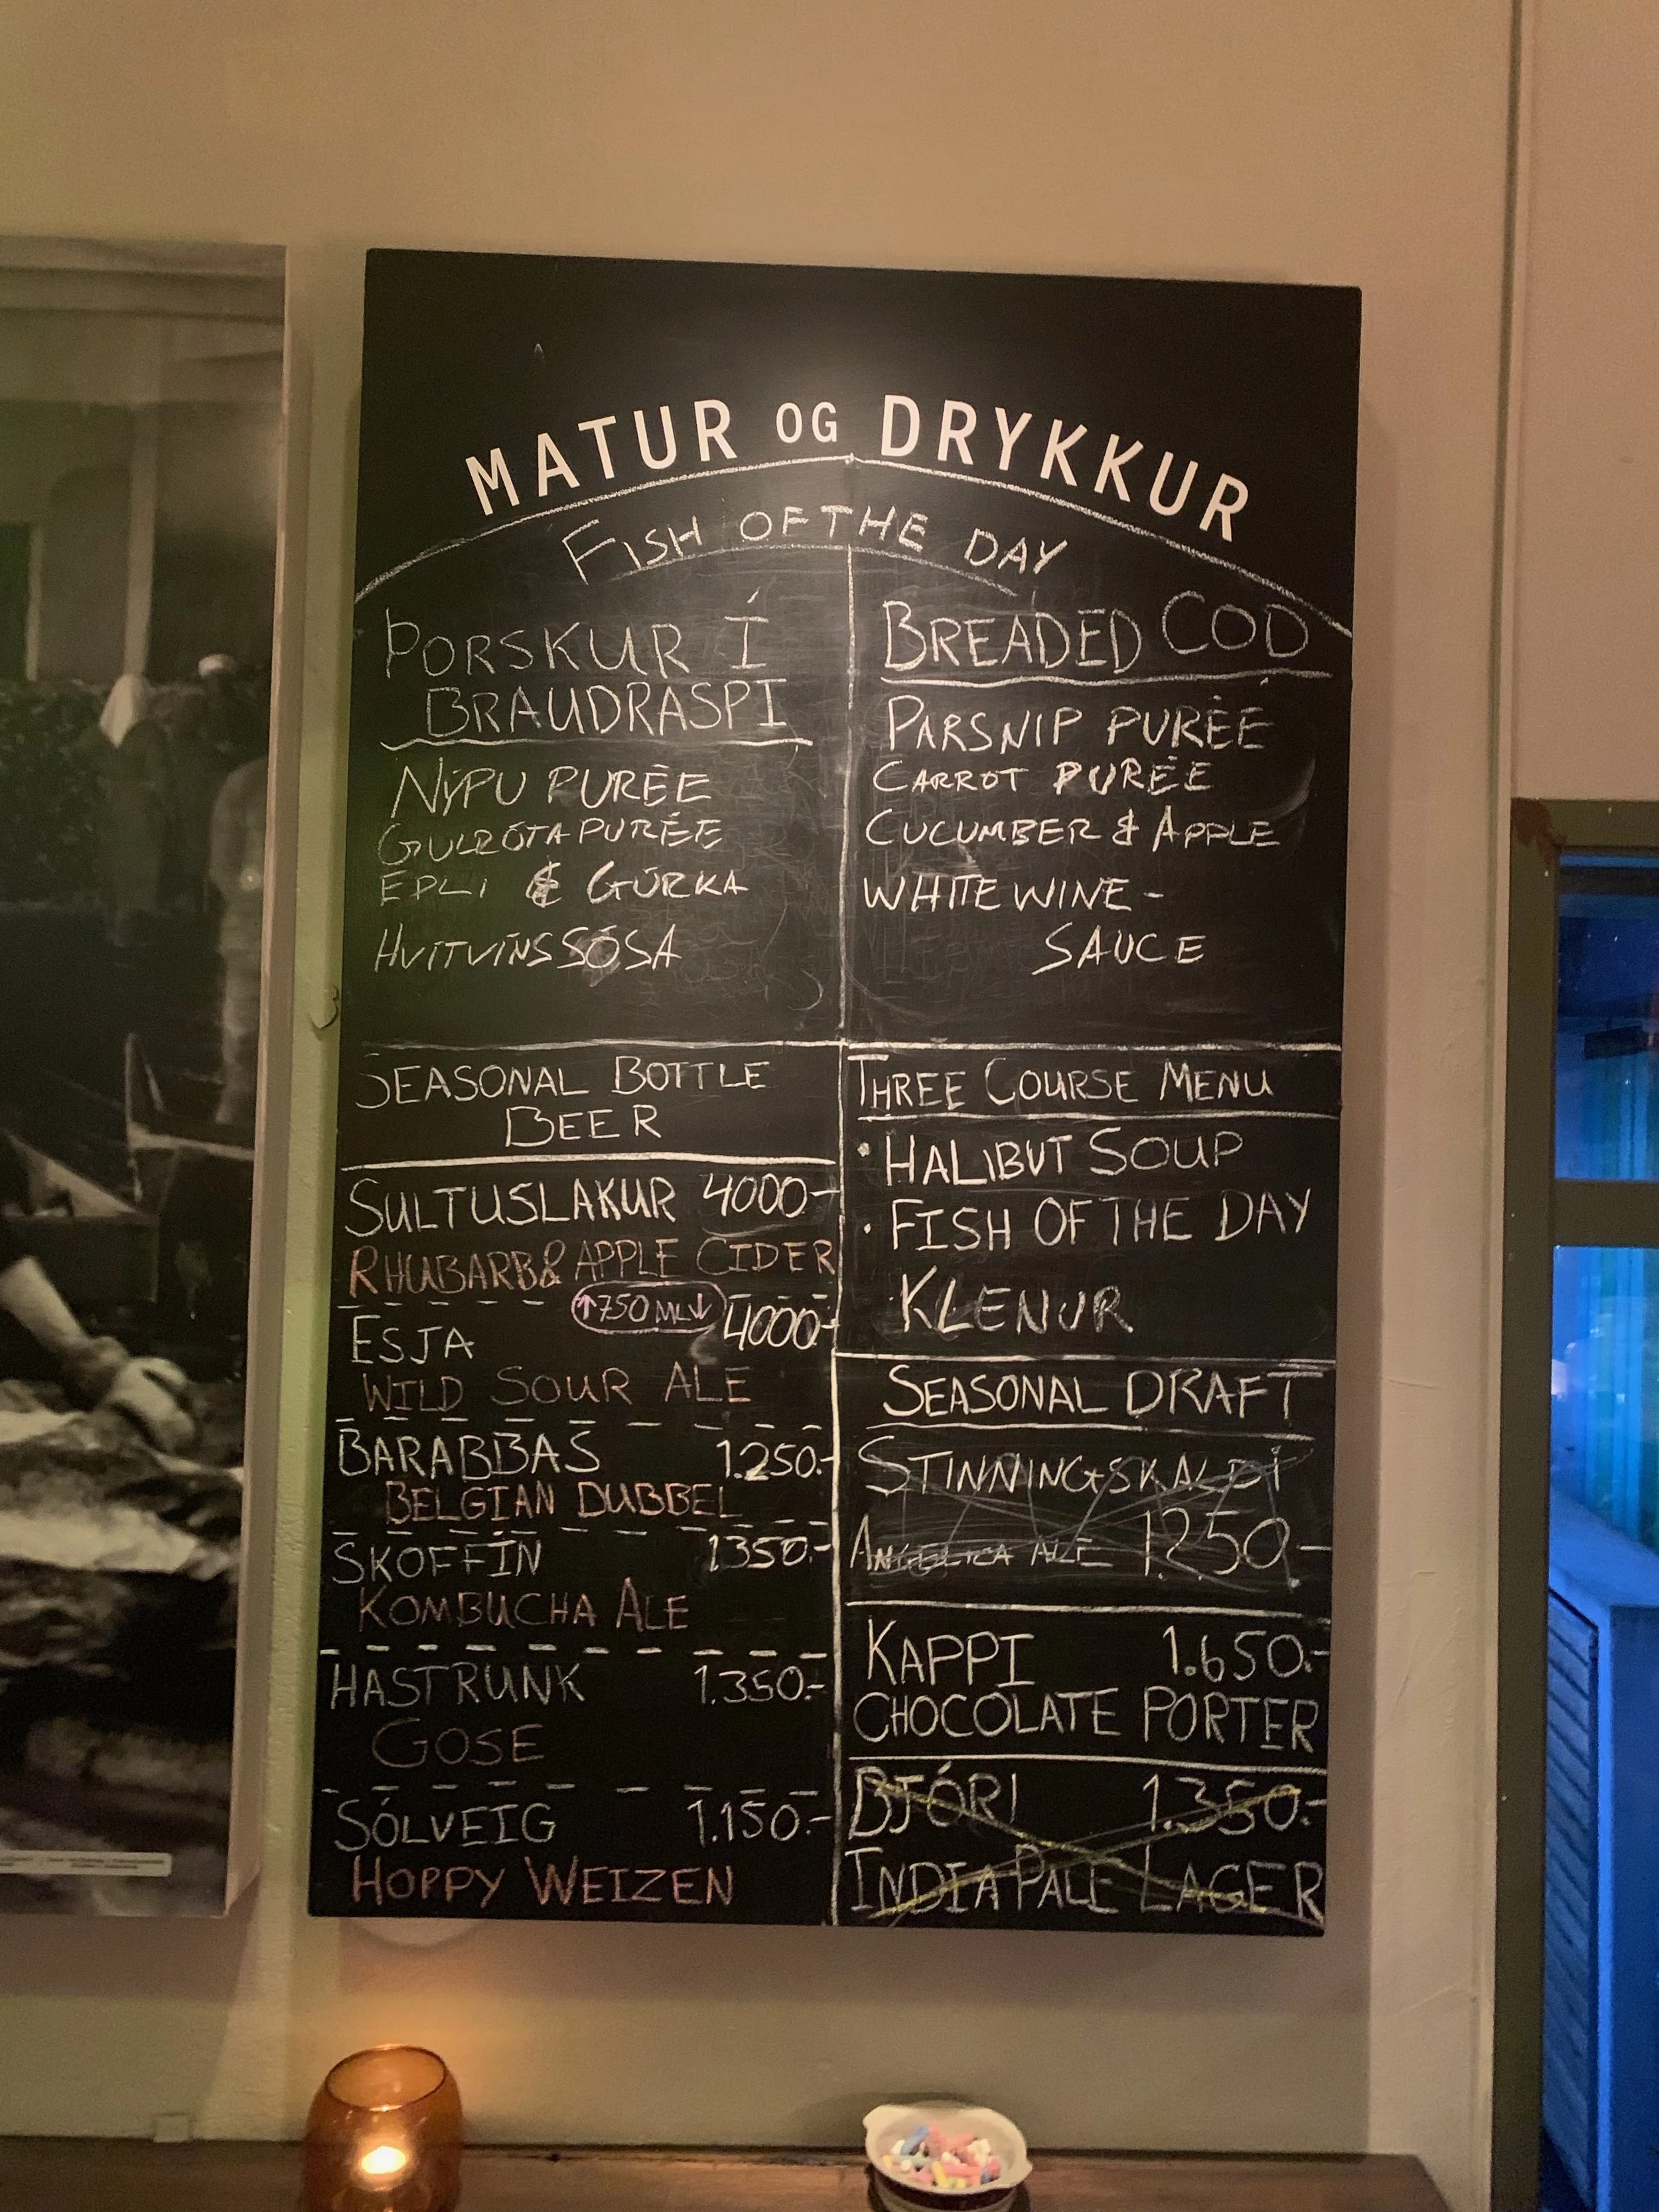 MATUR OG DRYKKUR
FISH OF THE DAY
ÞORSKUR Í
BRAUDRASPI
NÝPU PURÉE
GULRÓTA PURÉE
EPLI & GÚRKA
HVÍTVÍNSSÓSA
BREADED COD
PARSNIP PURÉE
CARROT PURÉE
CUCUMBER & APPLE
WHITE WINE-
SAUCE
SEASONAL BOTTLE
BEER
SULTUSLAKUR 4000-
RHUBARB & APPLE CIDER
↑750 ML↓
ESJA 4000-
WILD SOUR ALE
BARABBAS 1.250.-
BELGIAN DUBBEL
SKOFFÍN 1350.-
KOMBUCHA ALE
HASTRUNK 1.350.-
GOSE
SÓLVEIG 1.150.-
HOPPY WEIZEN
THREE COURSE MENU
• HALIBUT SOUP
• FISH OF THE DAY
KLENUR
SEASONAL DRAFT
STINNINGSKALDI
ANGELICA ALE 1250.-
KAPPI 1.650.-
CHOCOLATE PORTER
BJÓR! 1.350.-
INDIA PALE LAGER